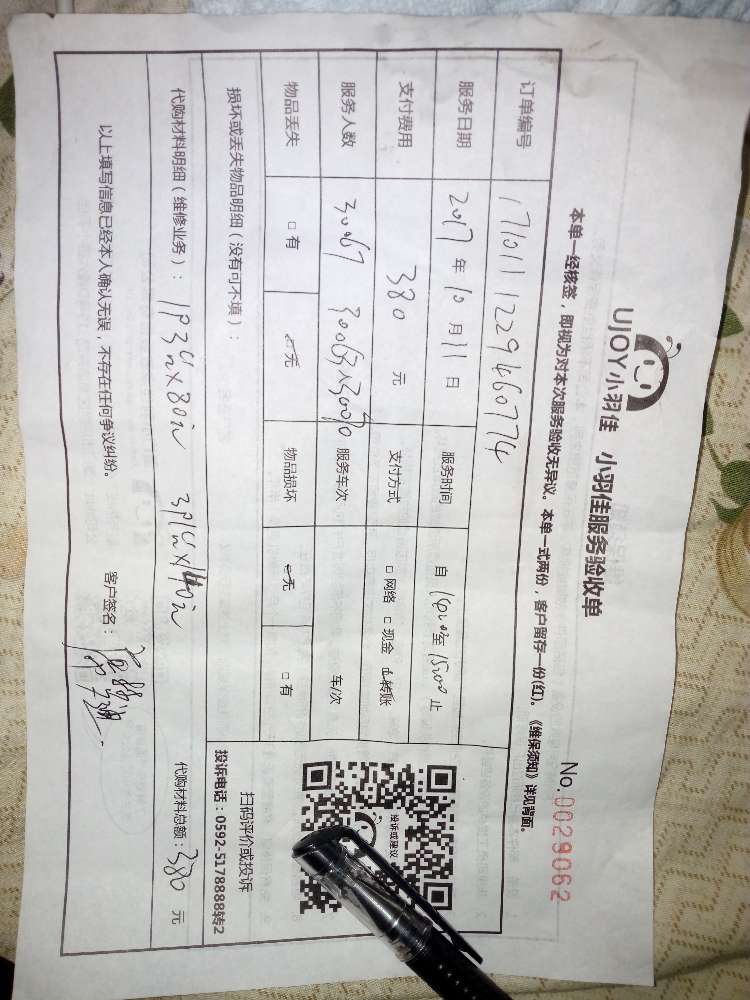 UJOY小羽佳 小羽佳服务验收单
No.0029062
本单一经核签，即视为对本次服务验收无异议。本单一式两份，客户留存一份(红)。《维保须知》详见背面。
订单编号 171011122946077 4
服务日期 2017年10月11日 服务时间 自 至 止
支付费用 380 元 支付方式 □ 网络 □ 现金 转账
服务人数 服务车次 车/次
物品丢失 □ 有 无 物品损坏 无 □ 有
损坏或丢失物品明细（没有可不填）：
投诉或建议
扫码评价或投诉
投诉电话：0592-5178888转2
代购材料明细（维修业务）： 代购材料总额：380 元
以上填写信息已经本人确认无误，不存在任何争议纠纷。 客户签名：